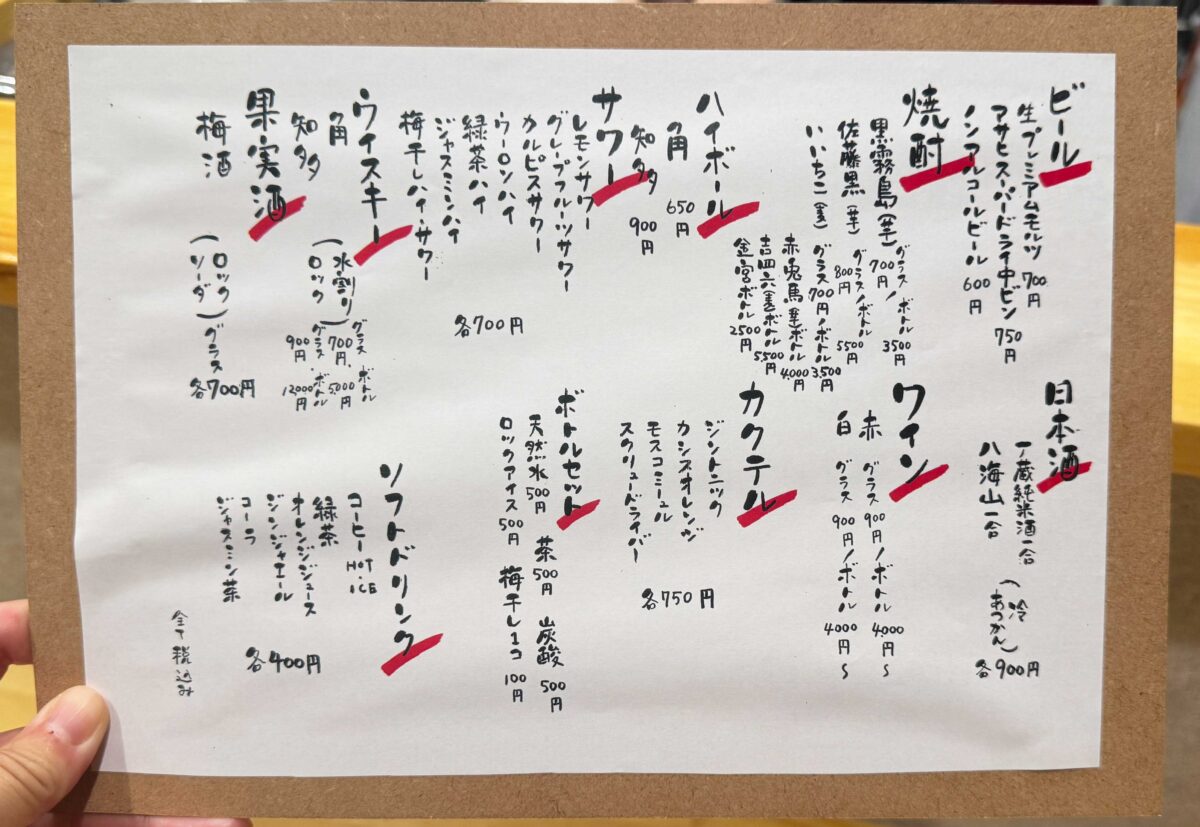 ビール
生プレミアムモルツ 700円
アサヒスーパードライ中ビン 750円
ノンアルコールビール 600円
焼酎
黒霧島(芋) グラス700円/ボトル3500円
佐藤黒(芋) グラス800円/ボトル5500円
いいちこ(麦) グラス700円/ボトル3,500円
赤兎馬(芋)ボトル4,000円
吉四六(麦)ボトル5,500円
金宮ボトル2500円
ハイボール
角 650円
知多 900円
サワー
レモンサワー
グレープフルーツサワー
カルピスサワー
ウーロンハイ
緑茶ハイ
ジャスミンハイ
梅干しハイ・サワー
各700円
ウイスキー
角 (水割り グラス700円、ボトル5,000円
知多 ロック) グラス900円・ボトル12,000円
果実酒
梅酒 (ロック
ソーダ) グラス
各700円
日本酒
一蔵純米酒一合 (冷
八海山一合 あつかん)
各900円
ワイン
赤 グラス900円/ボトル4000円~
白 グラス900円/ボトル4000円~
カクテル
ジントニック
カシスオレンジ
モスコミュール
スクリュードライバー
各750円
ボトルセット
天然水500円 茶500円 炭酸500円
ロックアイス500円 梅干し1コ100円
ソフトドリンク
コーヒーHOT・ICE
緑茶
オレンジジュース
ジンジャエール
コーラ
ジャスミン茶
各400円
全て税込み